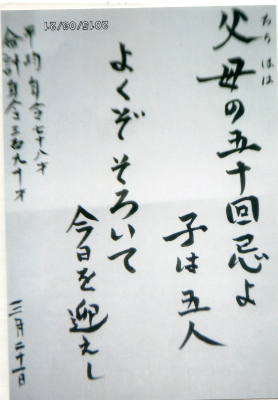 ちち はは
父母の五十回忌よ
子は五人
よくぞそろいて
今日を迎えし
三月二十一日
平均身令七十八才
合計身令三百九十才
2015/03/21